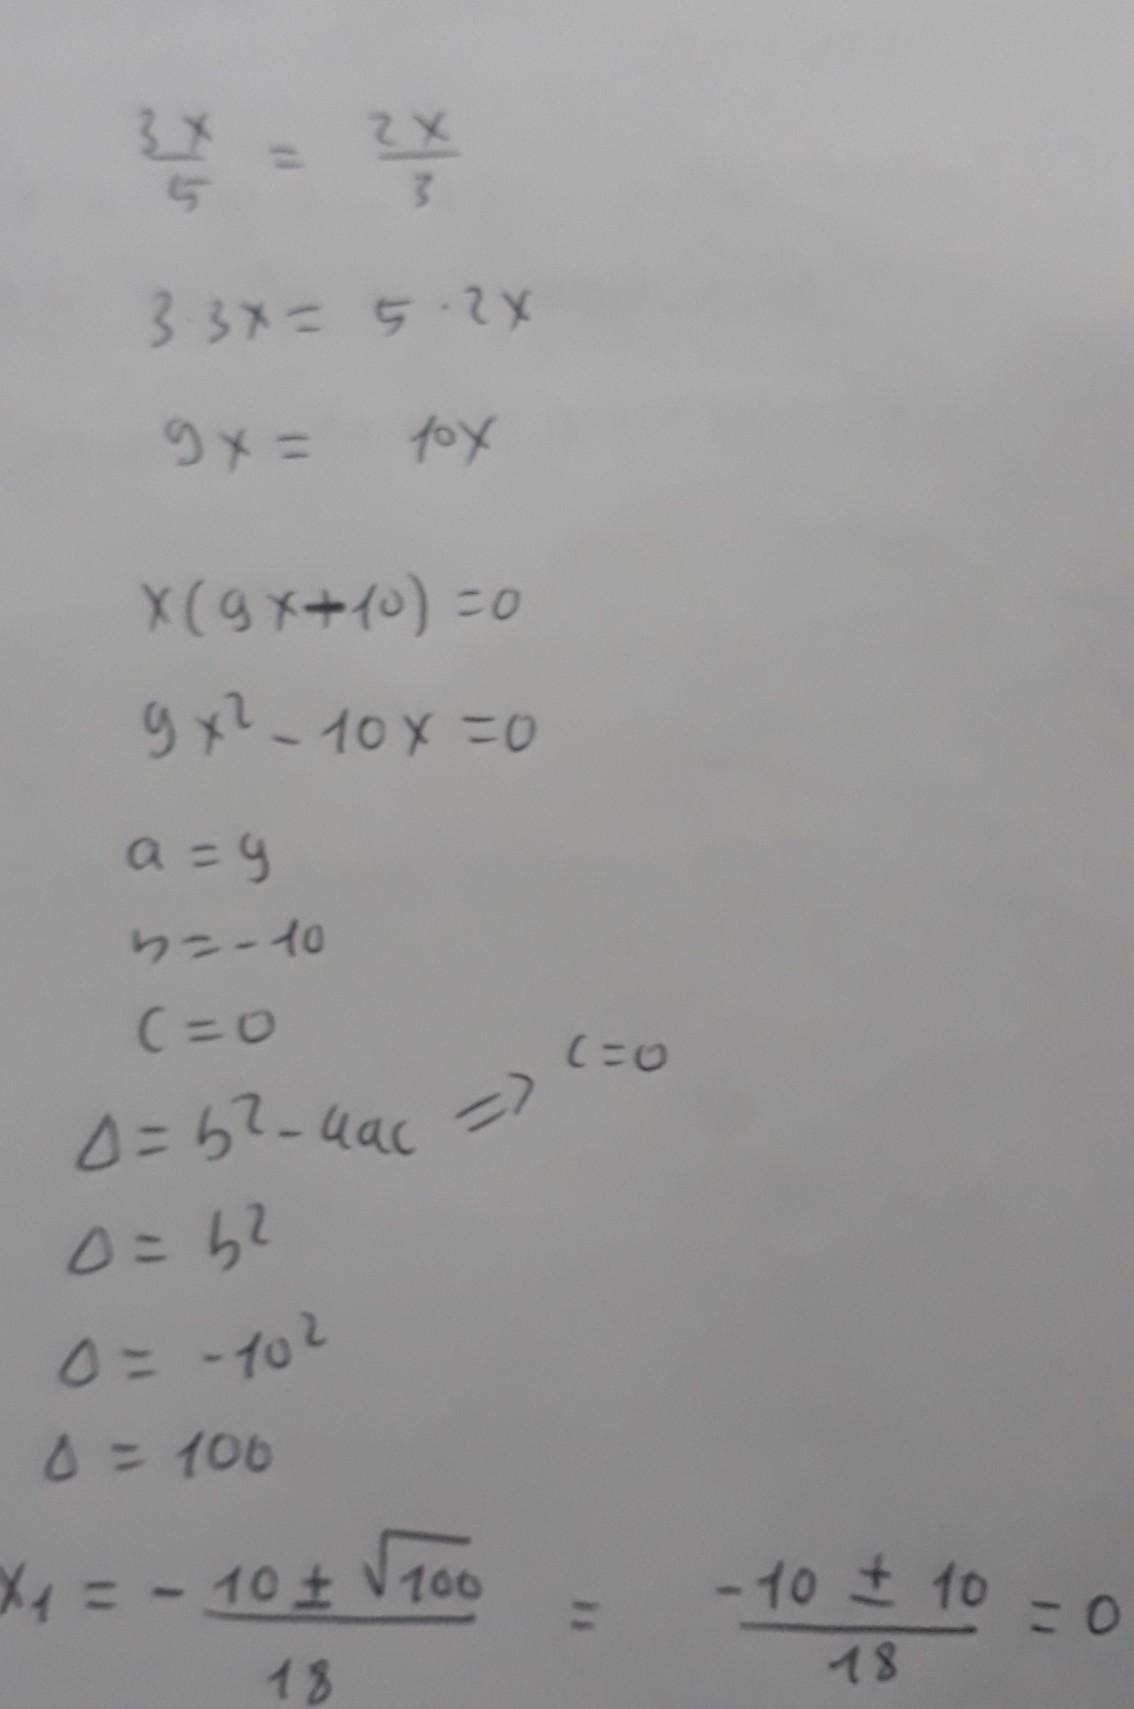 3x/5 = 2x/3
3·3x = 5·2x
9x = 10x
x(9x+10) = 0
9x² - 10x = 0
a = 9
b = -10
c = 0
Δ = b² - 4ac => c=0
Δ = b²
Δ = -10²
Δ = 100
x₁ = - 10 ± √100 / 18 = -10 ± 10 / 18 = 0